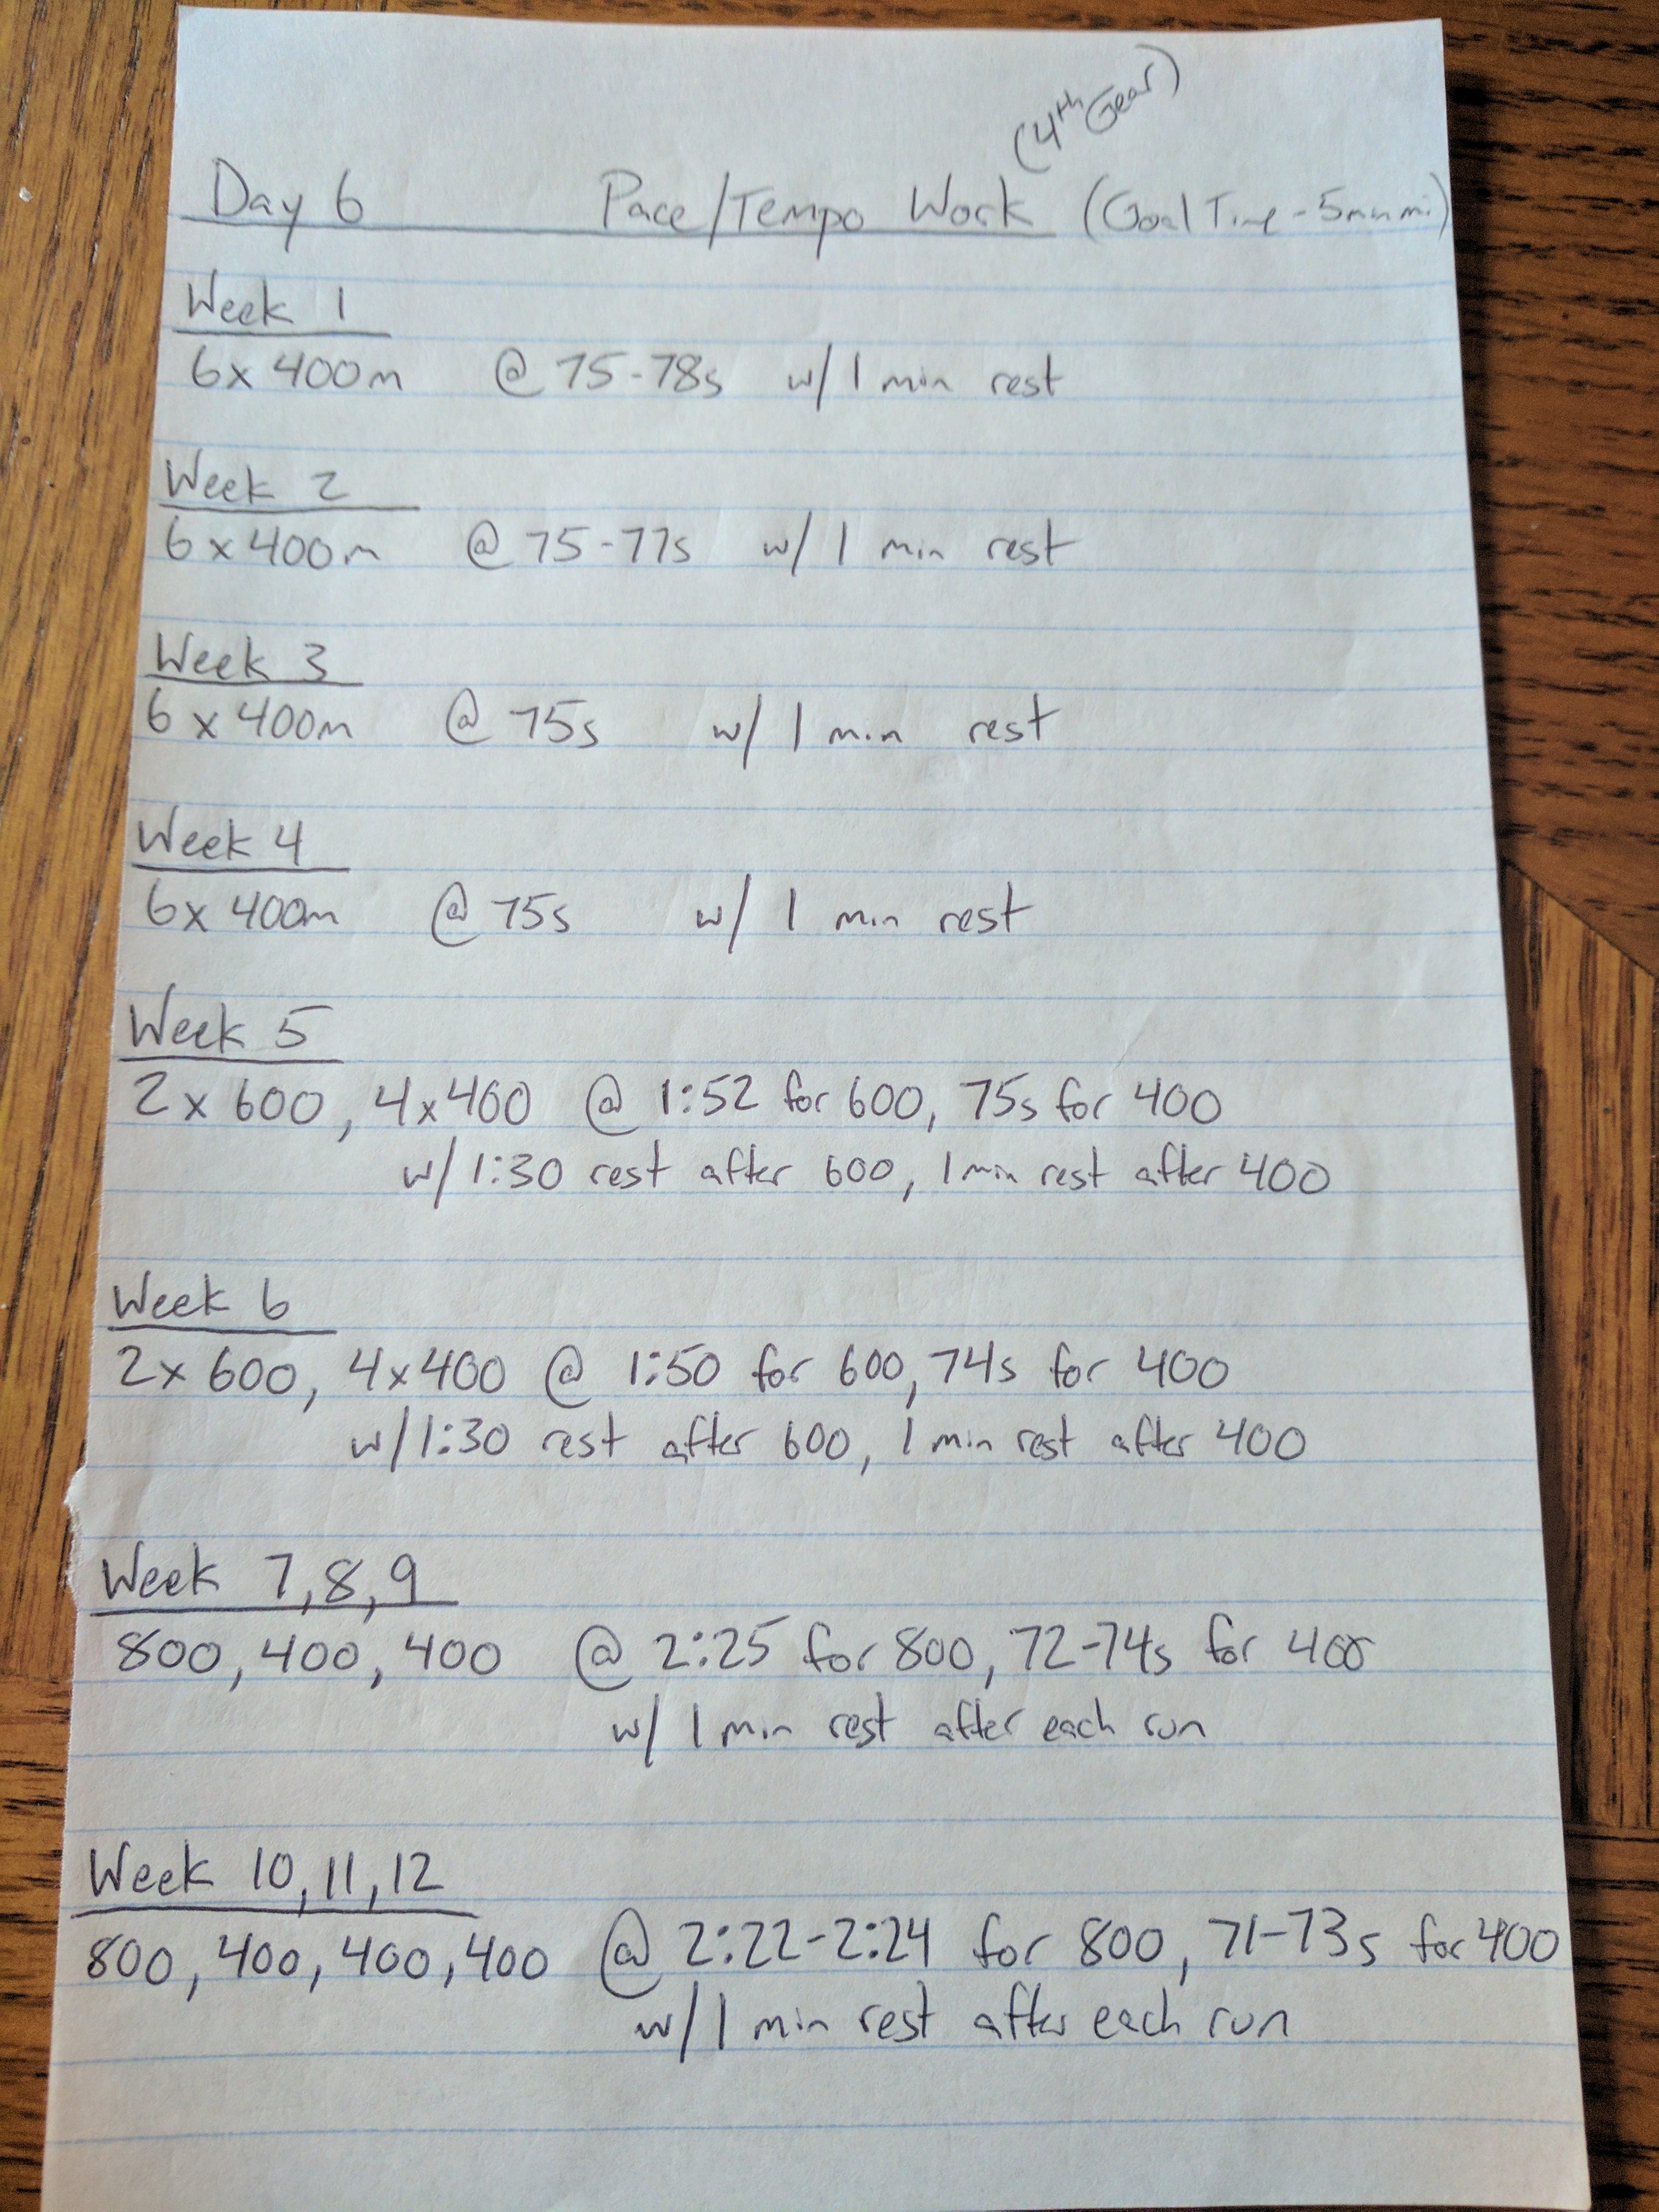 (4th Gear)
Day 6 Pace/Tempo Work (Goal Time - 5min mi)
Week 1
6x 400m @ 75-78s w/ 1 min rest
Week 2
6x400m @ 75-77s w/ 1 min rest
Week 3
6 x 400m @ 75s w/ 1 min rest
Week 4
6x 400m @ 75s w/ 1 min rest
Week 5
2x 600, 4x400 @ 1:52 for 600, 75s for 400
w/ 1:30 rest after 600, 1 min rest after 400
Week 6
2x 600, 4x400 @ 1:50 for 600, 74s for 400
w/ 1:30 rest after 600, 1 min rest after 400
Week 7,8,9
800, 400, 400 @ 2:25 for 800, 72-74s for 400
w/ 1 min rest after each run
Week 10,11,12
800, 400, 400, 400 @ 2:22-2:24 for 800, 71-73s for 400
w/ 1 min rest after each run